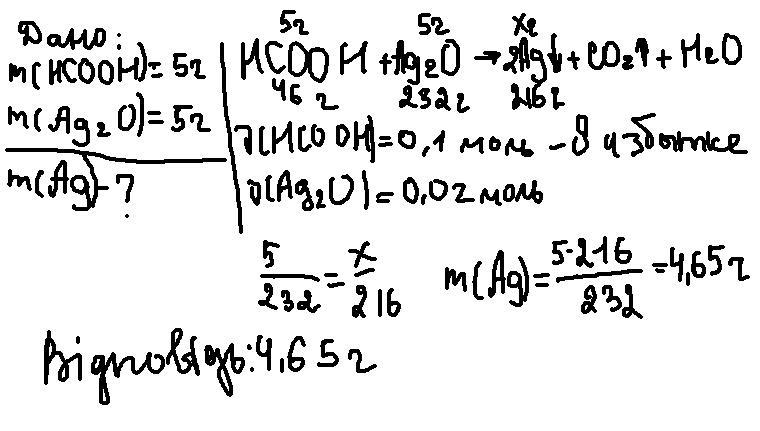 Дано:
m(HCOOH)=5г
m(Ag₂O)=5г
m(Ag)-?
5г 5г xг
HCOOH+Ag₂O→2Ag↓+CO₂↑+H₂O
46г 232г 216г
ν(HCOOH)=0,1 моль – В избытке
ν(Ag₂O)=0,02 моль
5/232=x/216
m(Ag)=5·216/232=4,65г
Відповідь:4,65г